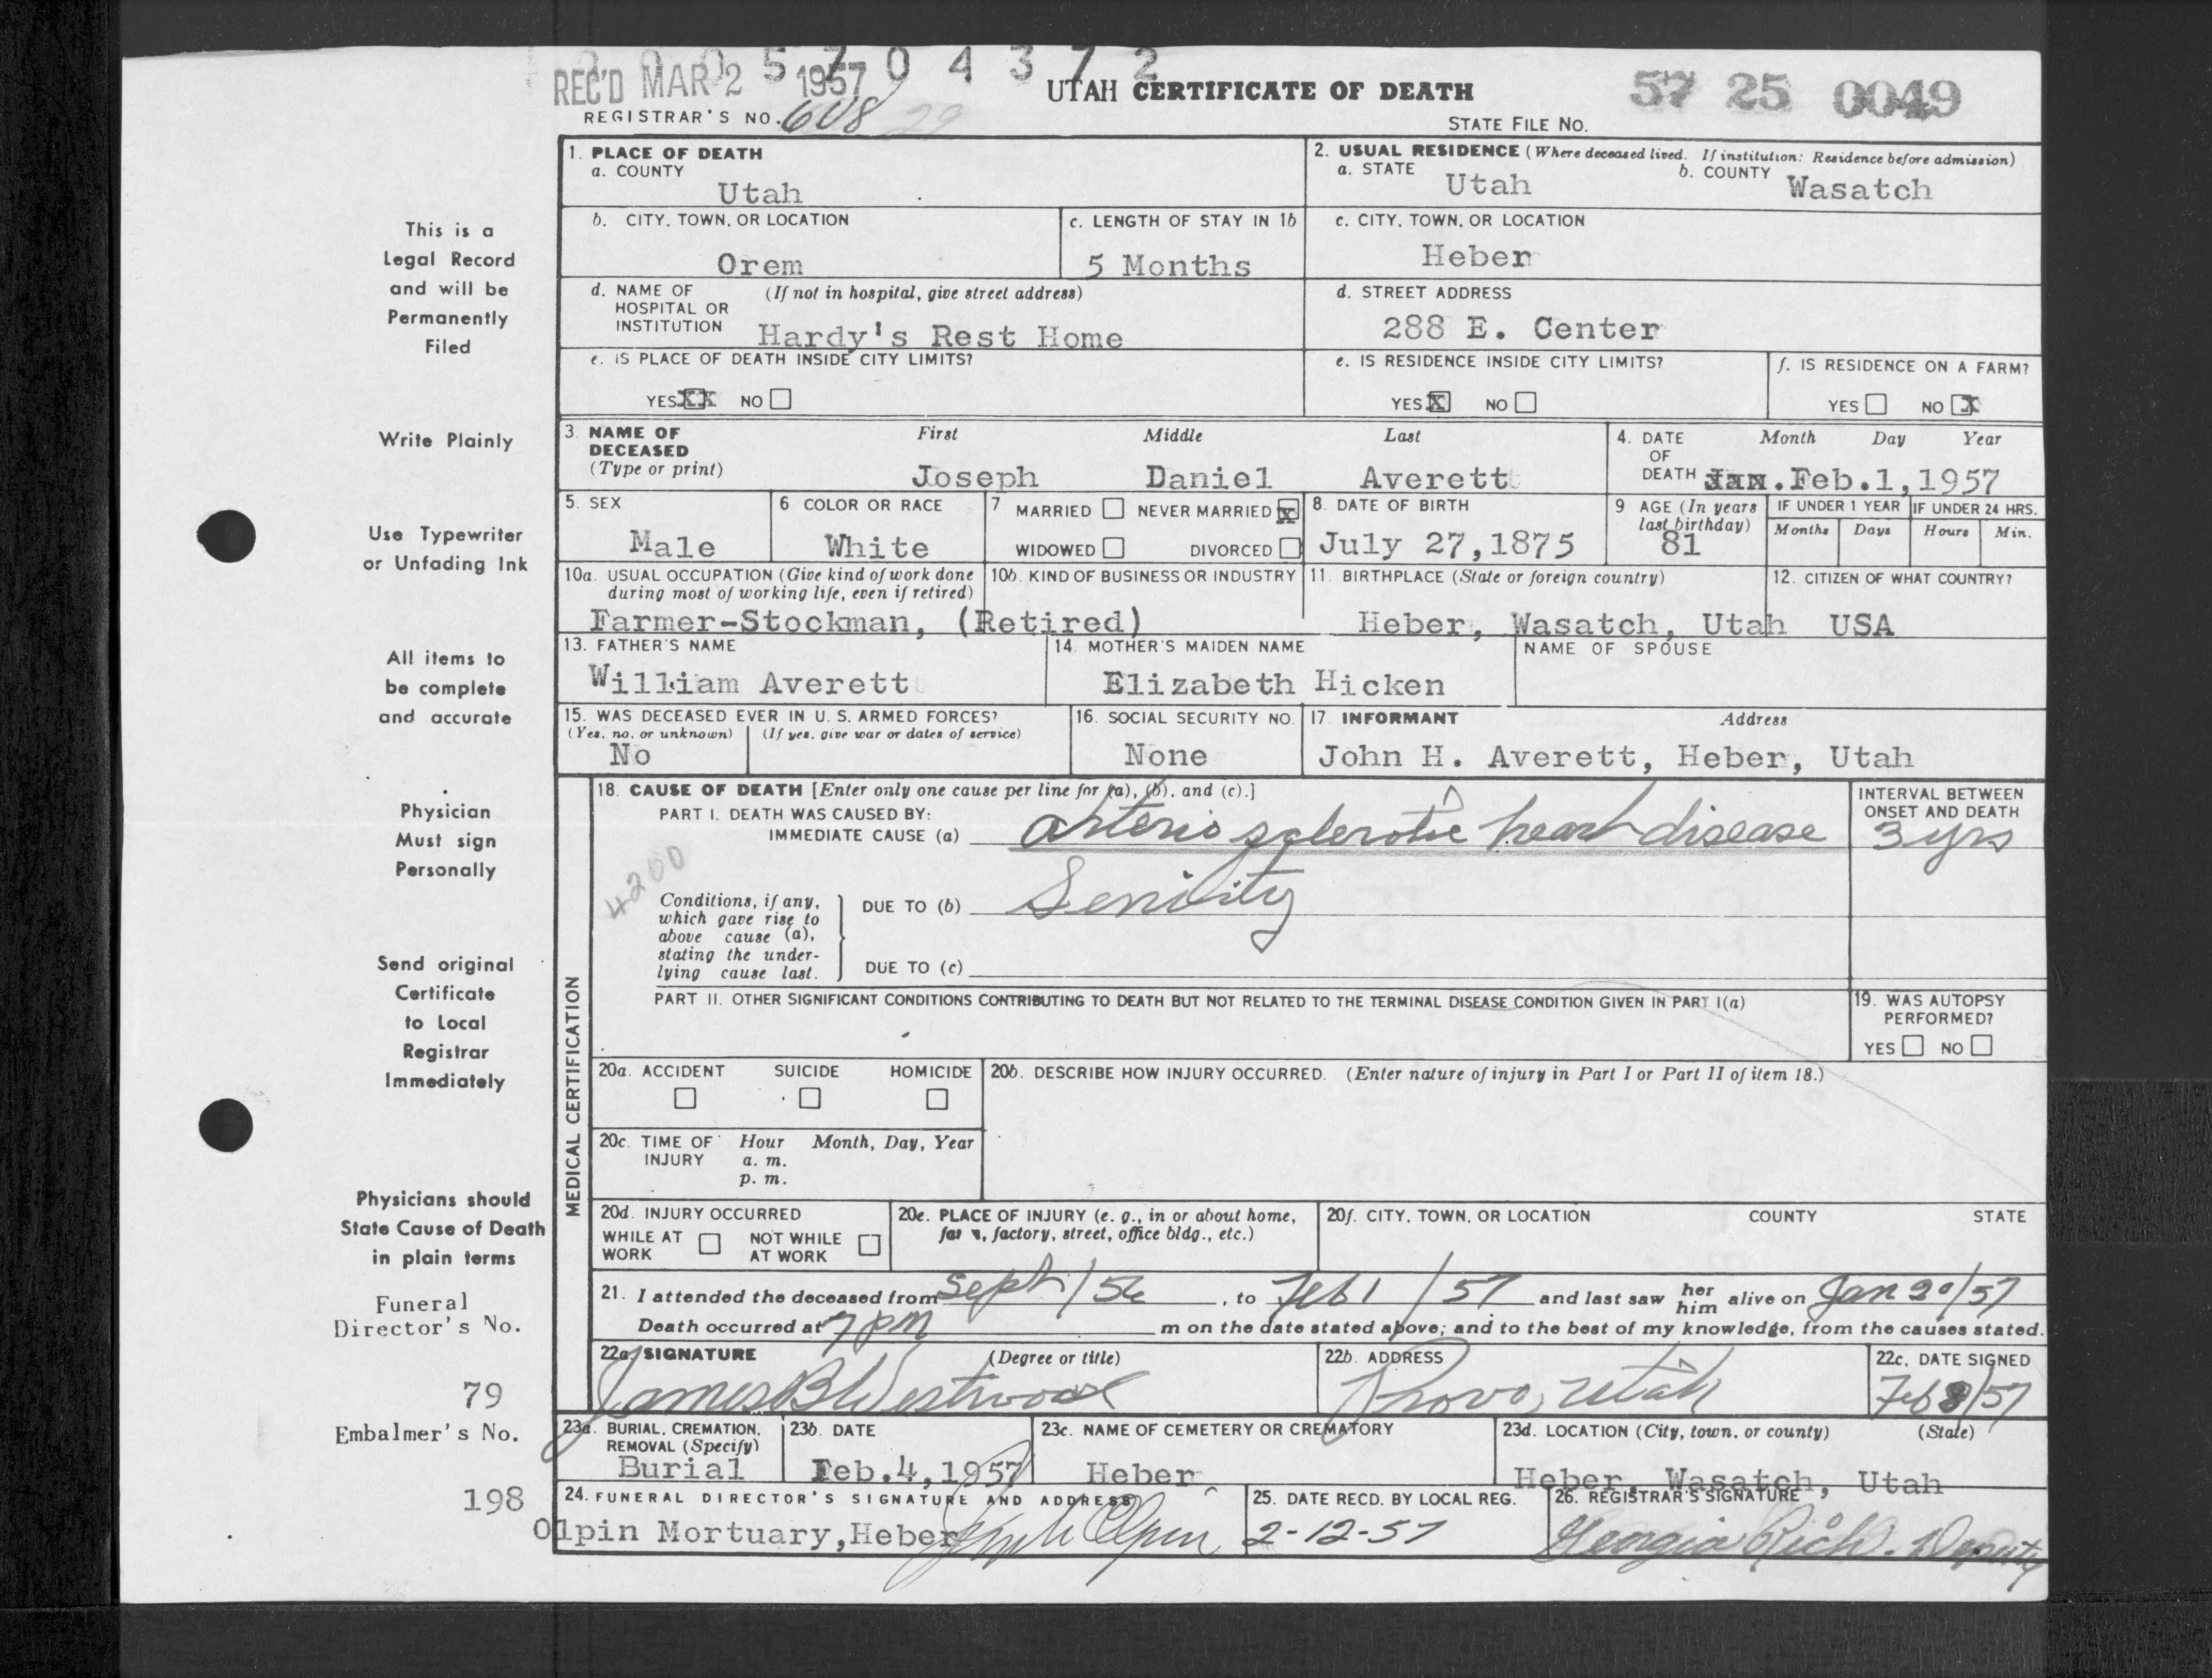 0005704372
REC'D MAR 2 1957
UTAH CERTIFICATE OF DEATH
57 25 0049
REGISTRAR'S NO. 608 29
STATE FILE No.
This is a
Legal Record
and will be
Permanently
Filed
Write Plainly
Use Typewriter
or Unfading Ink
All items to
be complete
and accurate
Physician
Must sign
Personally
Send original
Certificate
to Local
Registrar
Immediately
Physicians should
State Cause of Death
in plain terms
Funeral
Director's No.
79
Embalmer's No.
198
1. PLACE OF DEATH
a. COUNTY
Utah
2. USUAL RESIDENCE (Where deceased lived. If institution: Residence before admission)
a. STATE Utah b. COUNTY Wasatch
b. CITY, TOWN, OR LOCATION
Orem
c. LENGTH OF STAY IN 1b
5 Months
c. CITY, TOWN, OR LOCATION
Heber
d. NAME OF (If not in hospital, give street address)
HOSPITAL OR
INSTITUTION Hardy's Rest Home
d. STREET ADDRESS
288 E. Center
e. IS PLACE OF DEATH INSIDE CITY LIMITS?
YES XX NO
e. IS RESIDENCE INSIDE CITY LIMITS?
YES X NO
f. IS RESIDENCE ON A FARM?
YES NO X
3. NAME OF First Middle Last
DECEASED
(Type or print) Joseph Daniel Averett
4. DATE Month Day Year
OF
DEATH Jan. Feb.1,1957
5. SEX
Male
6 COLOR OR RACE
White
7 MARRIED NEVER MARRIED X
WIDOWED DIVORCED
8. DATE OF BIRTH
July 27,1875
9 AGE (In years
last birthday)
81
IF UNDER 1 YEAR
Months Days
IF UNDER 24 HRS.
Hours Min.
10a. USUAL OCCUPATION (Give kind of work done
during most of working life, even if retired)
Farmer-Stockman, (Retired)
10b. KIND OF BUSINESS OR INDUSTRY
11. BIRTHPLACE (State or foreign country)
Heber, Wasatch, Utah
12. CITIZEN OF WHAT COUNTRY?
USA
13. FATHER'S NAME
William Averett
14. MOTHER'S MAIDEN NAME
Elizabeth Hicken
NAME OF SPOUSE
15. WAS DECEASED EVER IN U. S. ARMED FORCES?
(Yes, no, or unknown) (If yes, give war or dates of service)
No
16. SOCIAL SECURITY NO.
None
17. INFORMANT Address
John H. Averett, Heber, Utah
MEDICAL CERTIFICATION
18. CAUSE OF DEATH [Enter only one cause per line for (a), (b), and (c).]
PART I. DEATH WAS CAUSED BY:
IMMEDIATE CAUSE (a) arterio sclerotic heart disease
INTERVAL BETWEEN
ONSET AND DEATH
3 yrs
4200
Conditions, if any,
which gave rise to
above cause (a),
stating the under-
lying cause last.
DUE TO (b) Senility
DUE TO (c)
PART II. OTHER SIGNIFICANT CONDITIONS CONTRIBUTING TO DEATH BUT NOT RELATED TO THE TERMINAL DISEASE CONDITION GIVEN IN PART I(a)
19. WAS AUTOPSY
PERFORMED?
YES NO
20a. ACCIDENT SUICIDE HOMICIDE
20b. DESCRIBE HOW INJURY OCCURRED. (Enter nature of injury in Part I or Part II of item 18.)
20c. TIME OF Hour Month, Day, Year
INJURY a. m.
p. m.
20d. INJURY OCCURRED
WHILE AT NOT WHILE
WORK AT WORK
20e. PLACE OF INJURY (e. g., in or about home,
farm, factory, street, office bldg., etc.)
20f. CITY, TOWN, OR LOCATION COUNTY STATE
21. I attended the deceased from Sept/56, to Feb 1/57 and last saw her him alive on Jan 20/57
Death occurred at 7 PM m on the date stated above; and to the best of my knowledge, from the causes stated.
22a. SIGNATURE (Degree or title)
James B Westwood
22b. ADDRESS
Provo, Utah
22c. DATE SIGNED
Feb 8/57
23a. BURIAL, CREMATION,
REMOVAL (Specify)
Burial
23b. DATE
Feb.4,1957
23c. NAME OF CEMETERY OR CREMATORY
Heber
23d. LOCATION (City, town, or county) (State)
Heber, Wasatch, Utah
24. FUNERAL DIRECTOR'S SIGNATURE AND ADDRESS
Olpin Mortuary,Heber Olpin
25. DATE RECD. BY LOCAL REG.
2-12-57
26. REGISTRAR'S SIGNATURE
Georgia Rich. Deputy